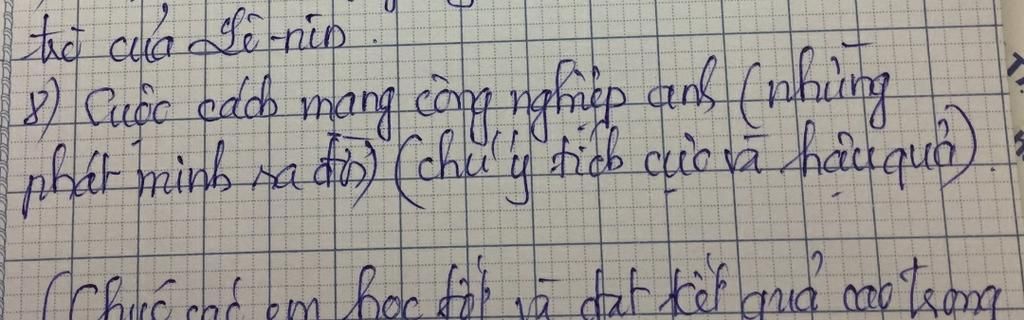 trò của Lê-nin.
8) Cuộc cách mạng công nghiệp anh (những
phát minh ra đời) (chú ý tích cực và hậu quả).
(Chúc các em học tốt và đạt kết quả cao trong